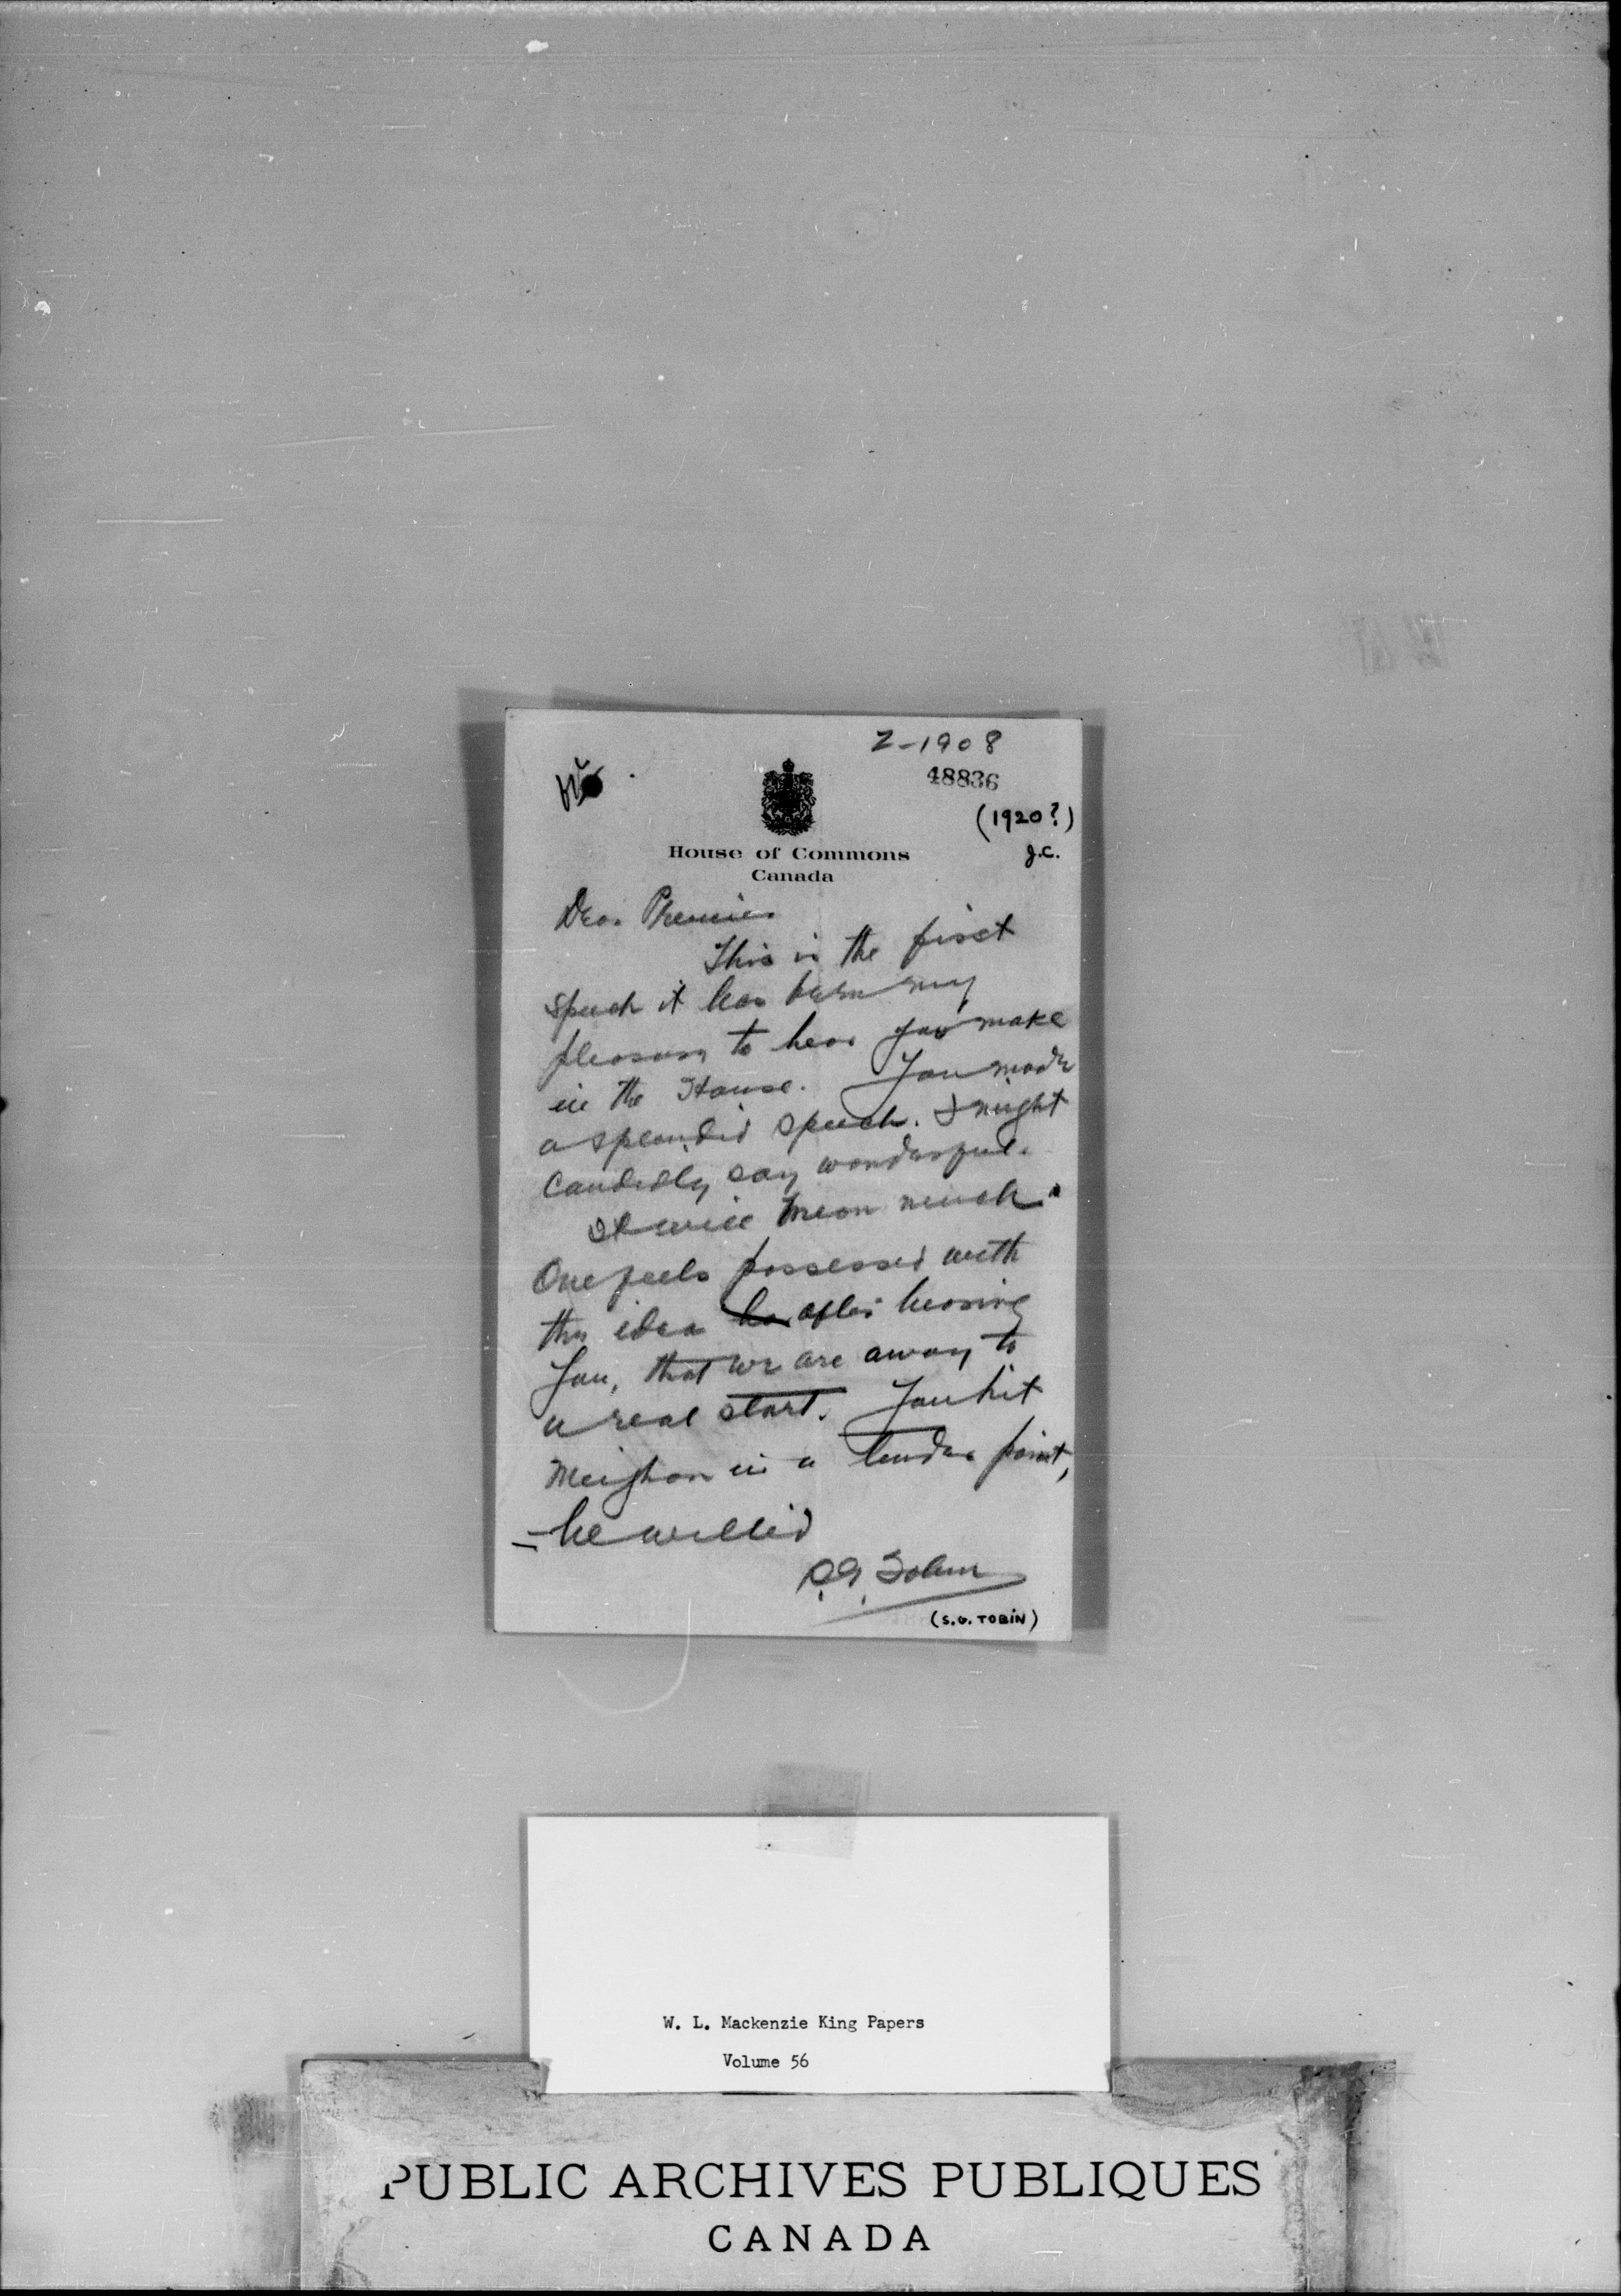 Z-1908
48836
(1920?)
J.C.
House of Commons
Canada
Dear Premier
This is the first
speech it has been my
pleasure to hear you make
in the House. You made
a splendid speech. I might
candidly say wonderful.
It will mean much.
One feels possessed with
the idea after hearing
you, that we are away to
a real start. You hit
Meighan in a tender point,
- he wilted
S.G. Tobin
(S.G. TOBIN)
W. L. Mackenzie King Papers
Volume 56
PUBLIC ARCHIVES PUBLIQUES
CANADA